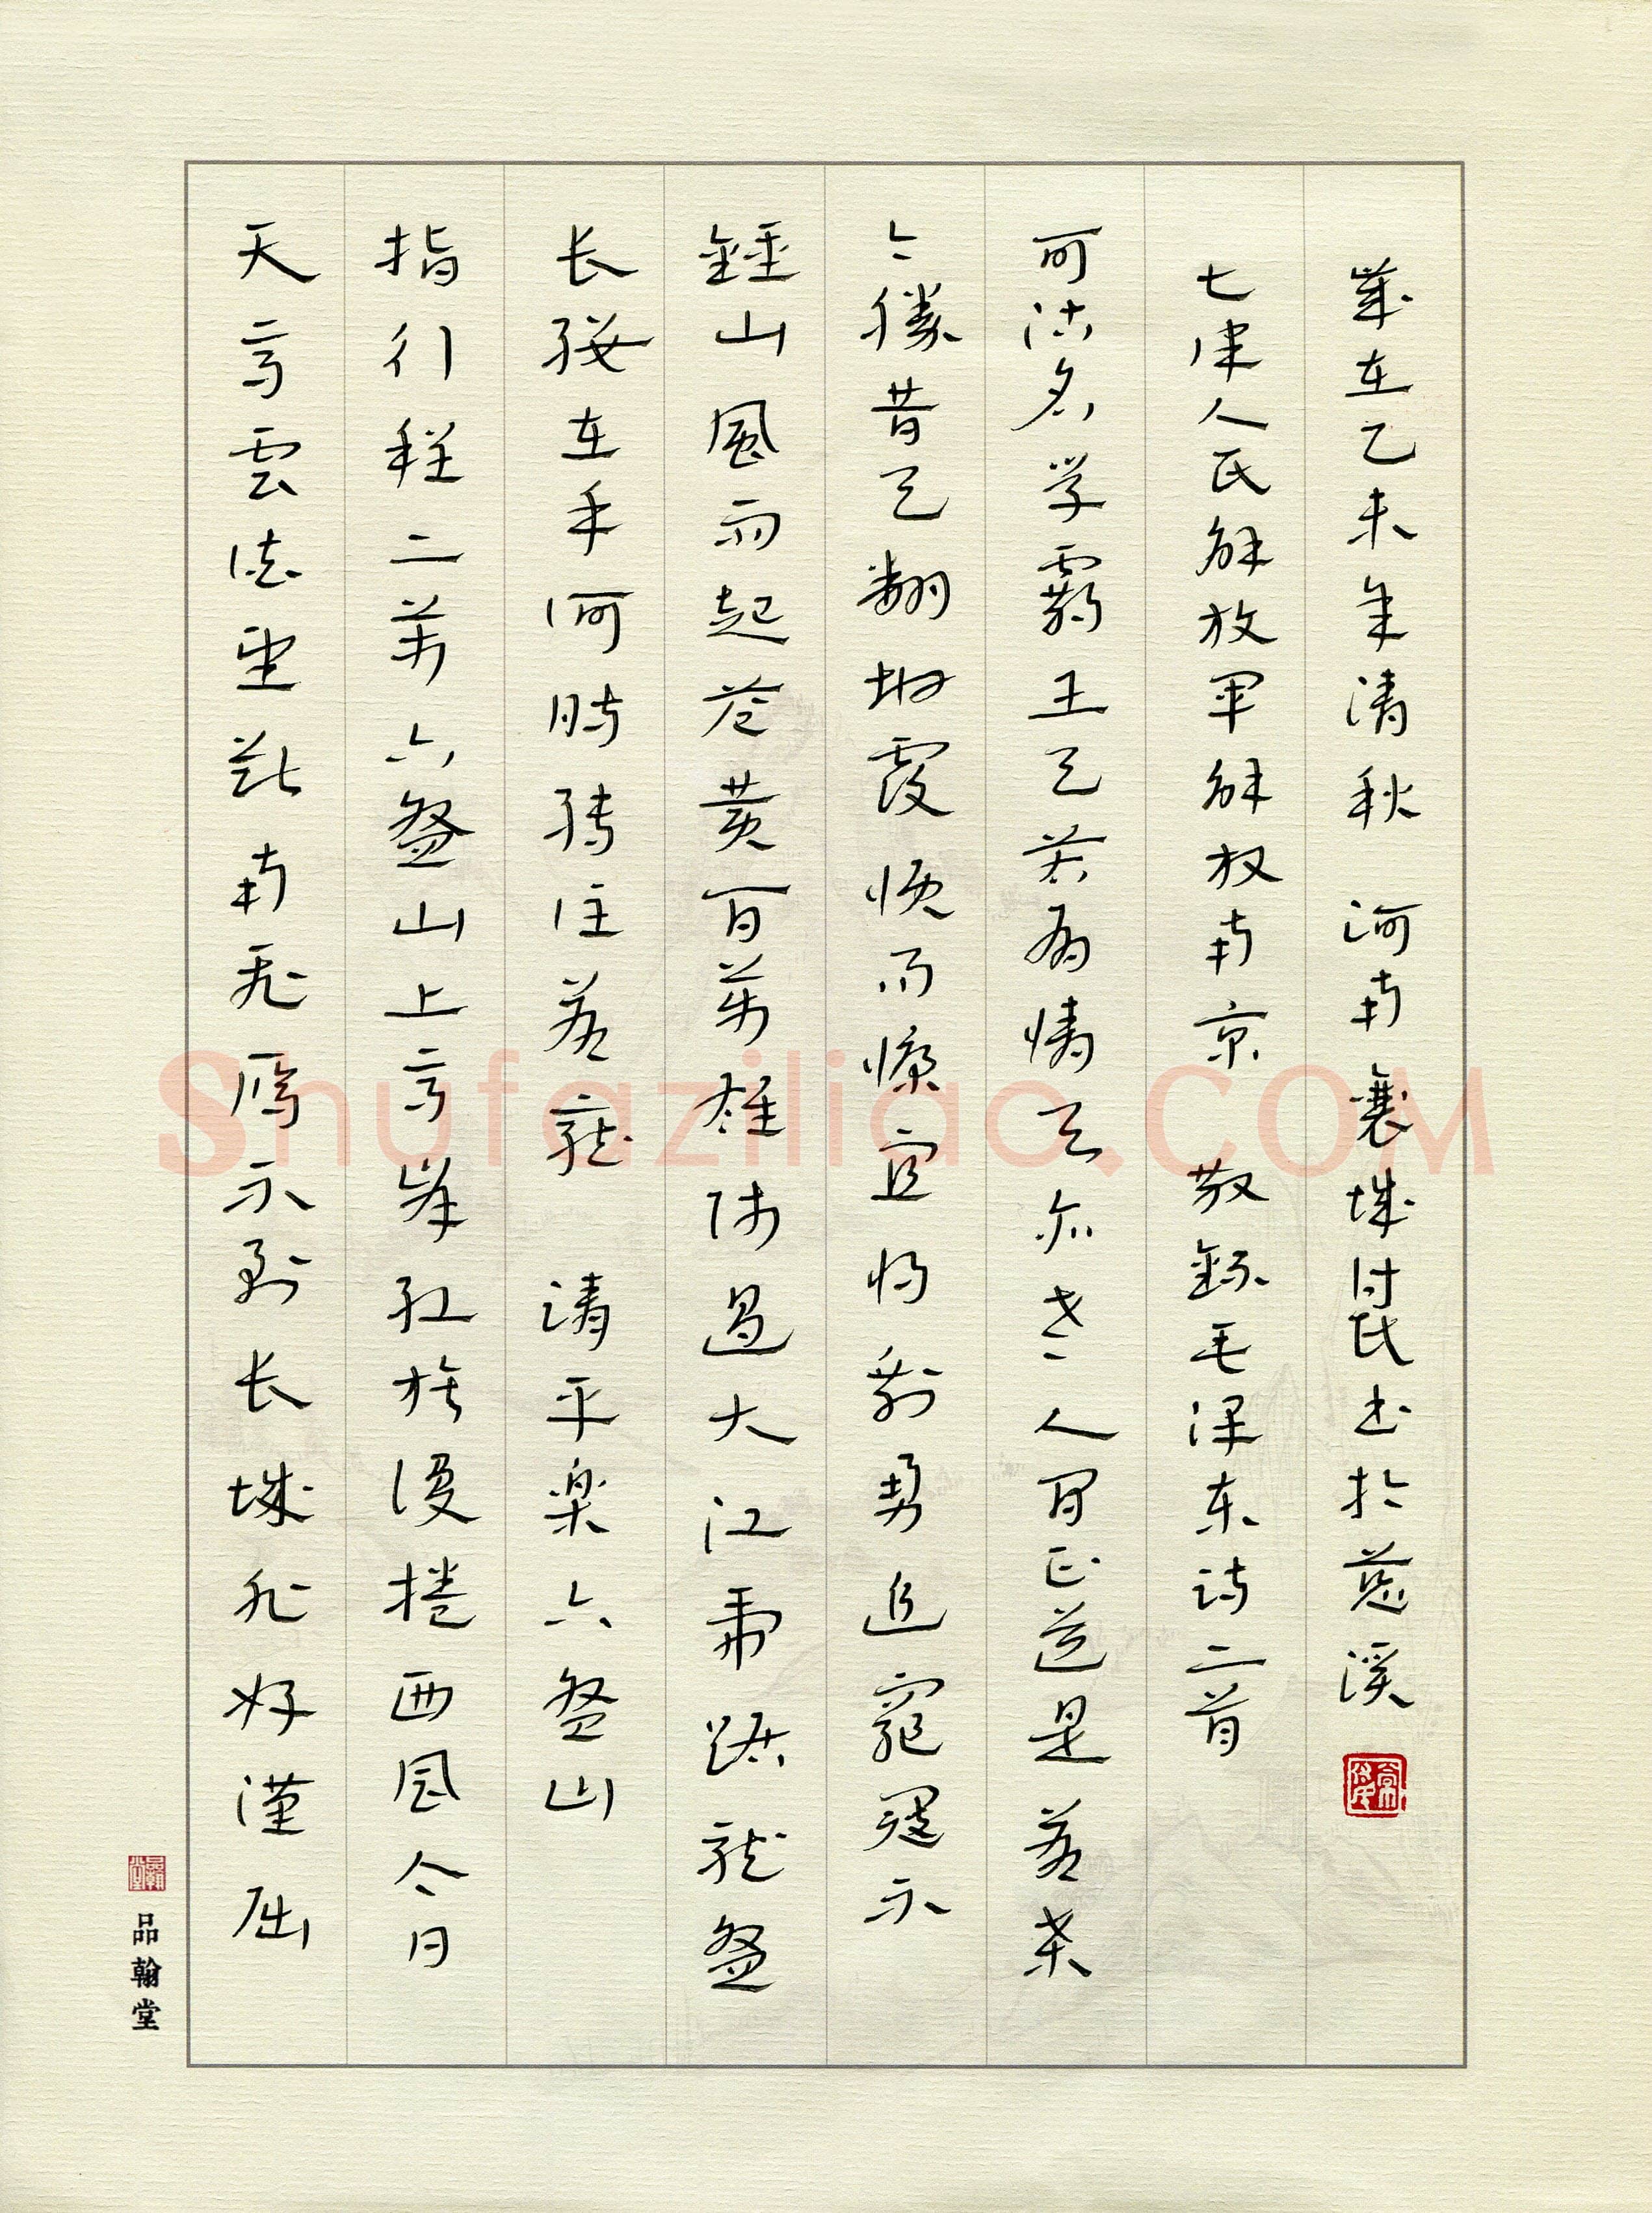 天高雲淡望斷南飛雁不到长城非好漢屈
指行程二萬六盤山上高峰紅旗漫捲西風今日
长纓在手何時縛住蒼龍 清平樂六盤山
鍾山風雨起蒼黃百萬雄師過大江虎踞龍盤
今勝昔天翻地覆慨而慷宜將剩勇追窮寇不
可沽名学霸王天若有情天亦老人間正道是滄桑
七律人民解放軍解放南京 敬錄毛澤東詩二首
歲在乙未年清秋 河南襄城付氏书於慈溪
品翰堂
Shufaziliao.COM